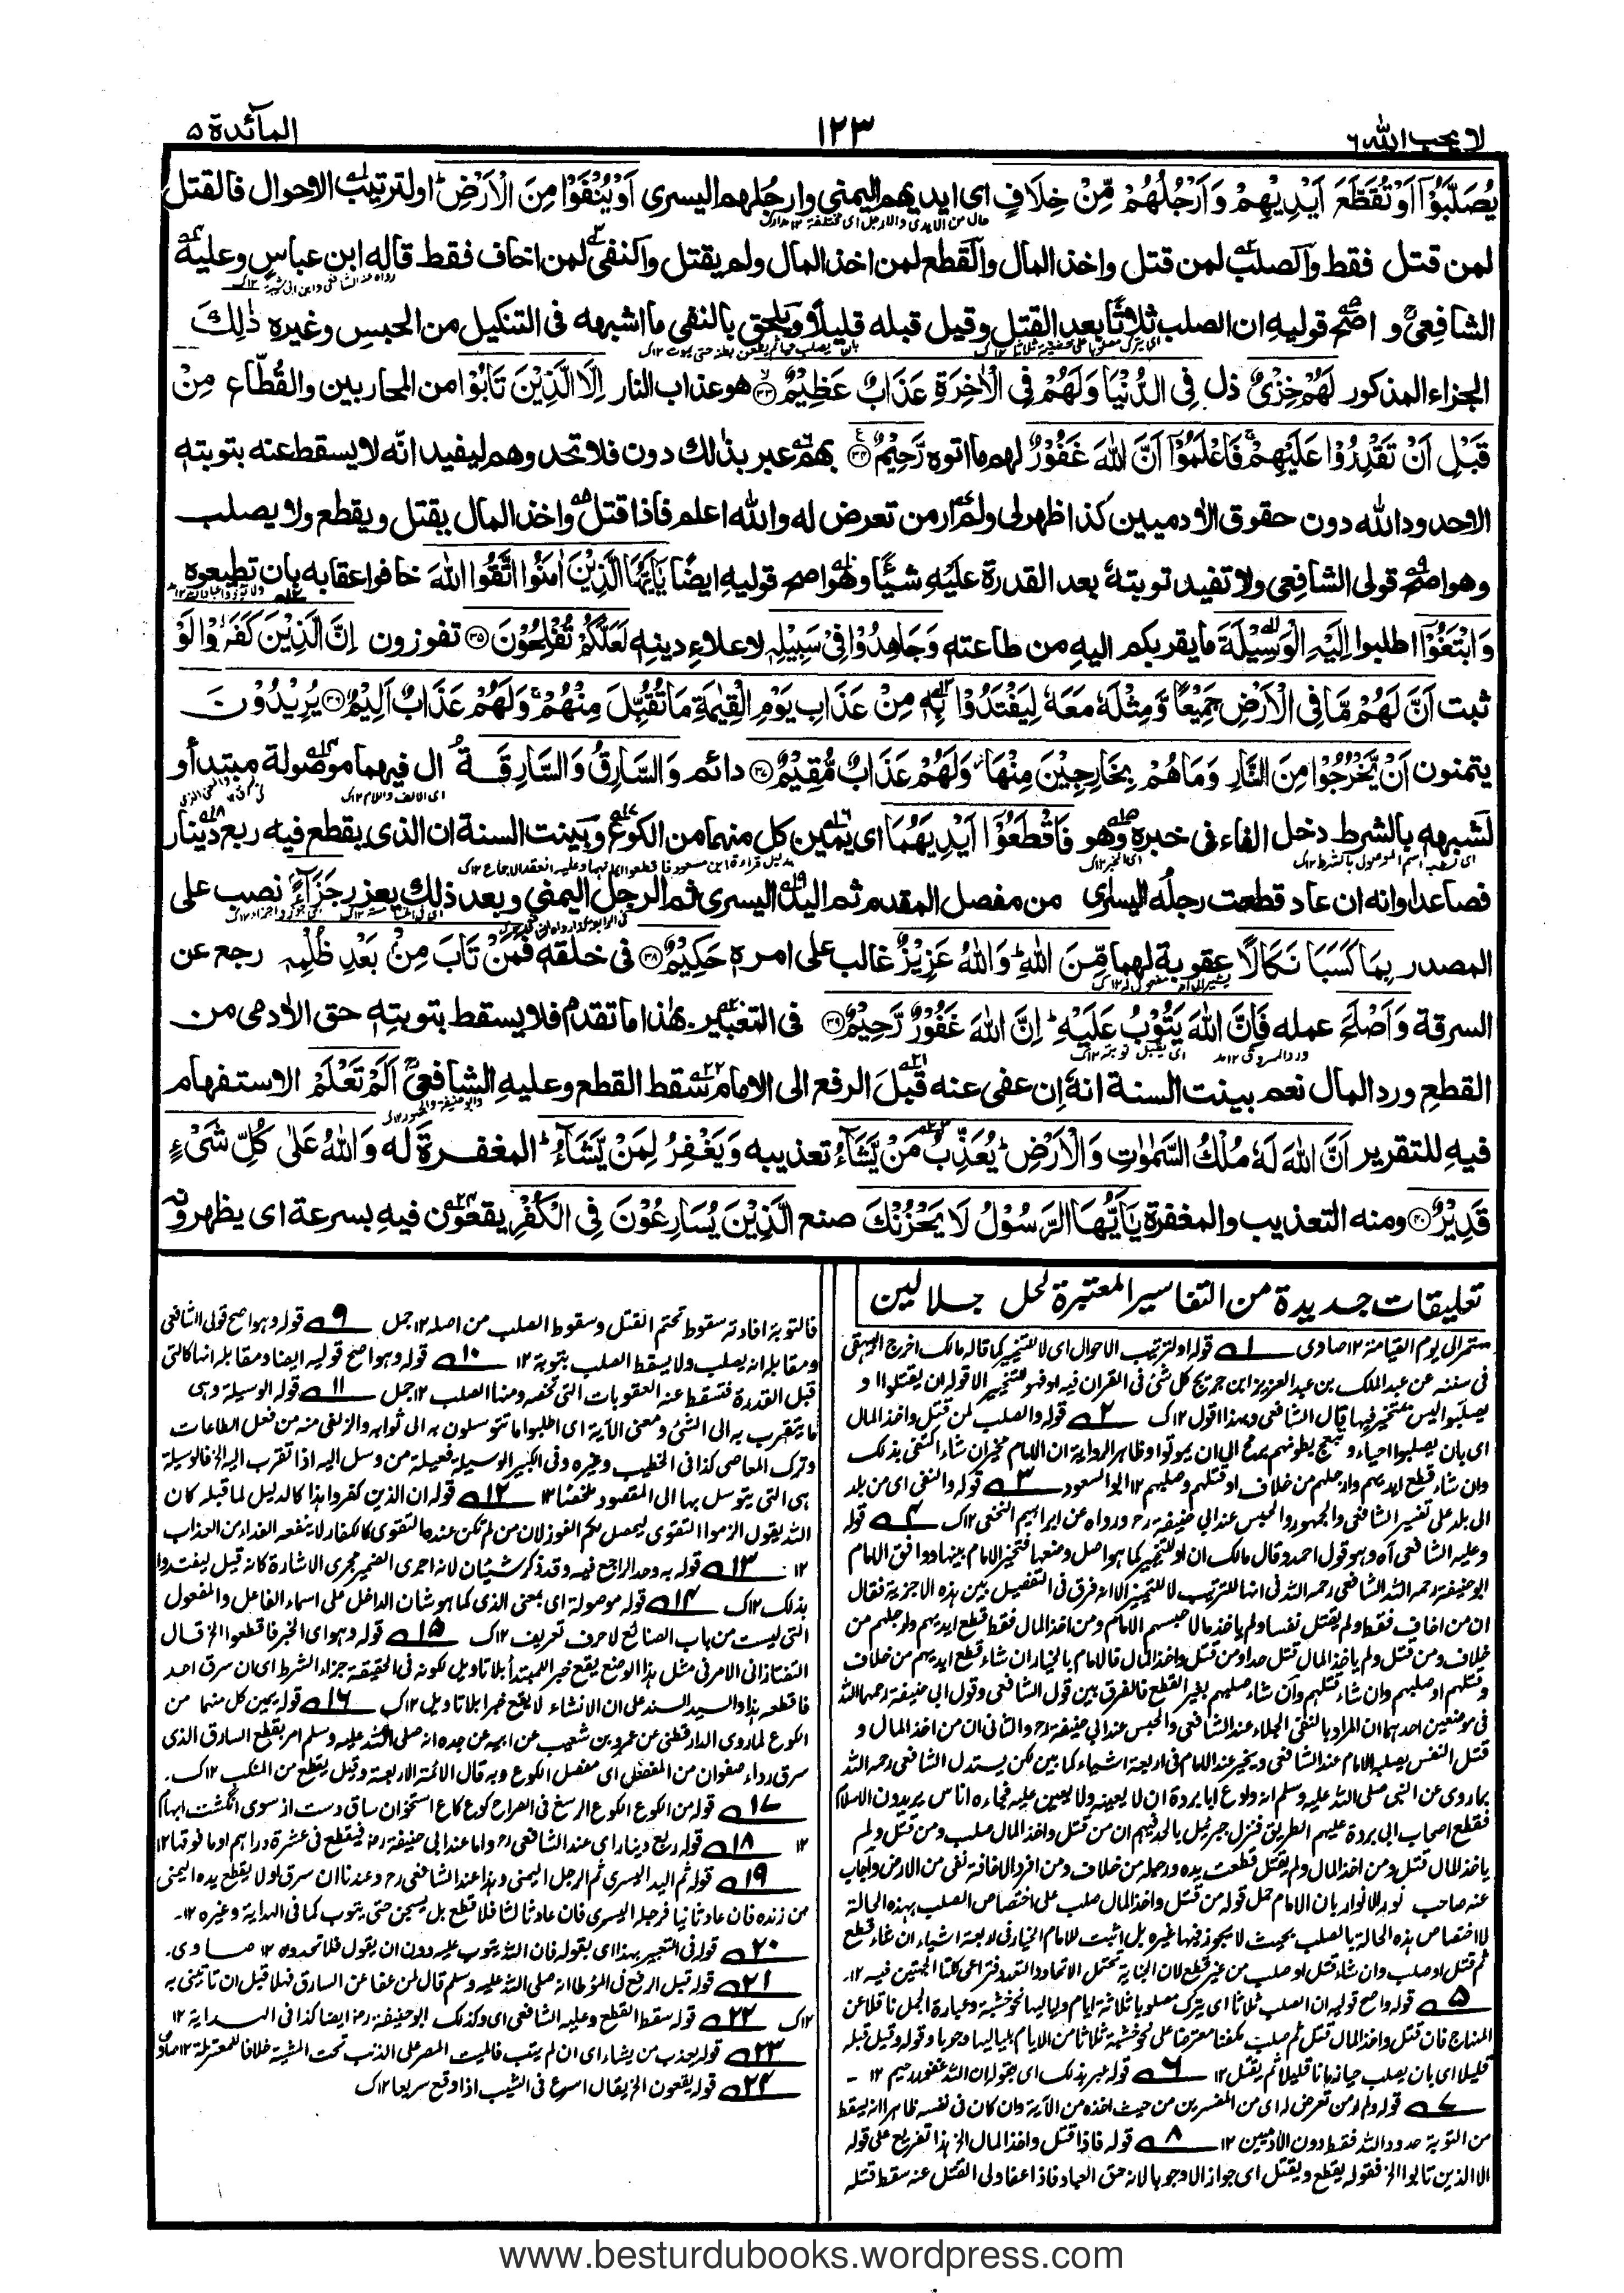 لا يحب الله ٦
١٢٣
المآئدة ٥
يُصَلَّبُوْٓا اَوْ تُقَطَّعَ اَيْدِيْهِمْ وَاَرْجُلُهُمْ مِّنْ خِلَافٍ اى ايديهم اليمنى وارجلهم اليسرى اَوْ يُنْفَوْا مِنَ الْاَرْضِ ؕ او لترتيب الاحوال فالقتل
لمن قتل فقط والصلب لمن قتل واخذ المال والقطع لمن اخذ المال ولم يقتل والنفى لمن اخاف فقط قاله ابن عباس وعليه
الشافعىؒ و اصح قوليه ان الصلب ثلاثا بعد القتل وقيل قبله قليلا ويلحق بالنفى ما اشبهه فى التنكيل من الحبس وغيره ذٰلِكَ
الجزاء المذكور لَهُمْ خِزْىٌ ذل فِى الدُّنْيَا وَلَهُمْ فِى الْاٰخِرَةِ عَذَابٌ عَظِيْمٌ ۙ﴿٣٣﴾ هو عذاب النار اِلَّا الَّذِيْنَ تَابُوْا من المحاربين والقُطّاع مِنْ
قَبْلِ اَنْ تَقْدِرُوْا عَلَيْهِمْ ۚ فَاعْلَمُوْٓا اَنَّ اللّٰهَ غَفُوْرٌ لهم ما اتوه رَّحِيْمٌ ﴿٣٤﴾ بهم عبر بذلك دون فلا تحدوهم ليفيد انّه لا يسقط عنه بتوبته
الاحدود الله دون حقوق الادميين كذا ظهر لى ولم ار من تعرض له والله اعلم فاذا قتل واخذ المال يقتل ويقطع ولا يصلب
وهو اصح قولى الشافعى ولا تفيد توبته بعد القدرة عليه شيئا وهو اصح قوليه ايضا يٰٓاَيُّهَا الَّذِيْنَ اٰمَنُوا اتَّقُوا اللّٰهَ خافوا عقابه بان تطيعوه
وَابْتَغُوْٓا اطلبوا اِلَيْهِ الْوَسِيْلَةَ ما يقربكم اليه من طاعته وَجَاهِدُوْا فِىْ سَبِيْلِهٖ لاعلاء دينه لَعَلَّكُمْ تُفْلِحُوْنَ ﴿٣٥﴾ تفوزون اِنَّ الَّذِيْنَ كَفَرُوْا لَوْ
ثبت اَنَّ لَهُمْ مَّا فِى الْاَرْضِ جَمِيْعًا وَّمِثْلَهٗ مَعَهٗ لِيَفْتَدُوْا بِهٖ مِنْ عَذَابِ يَوْمِ الْقِيٰمَةِ مَا تُقُبِّلَ مِنْهُمْ ۚ وَلَهُمْ عَذَابٌ اَلِيْمٌ ﴿٣٦﴾ يُرِيْدُوْنَ
يتمنون اَنْ يَّخْرُجُوْا مِنَ النَّارِ وَمَا هُمْ بِخٰرِجِيْنَ مِنْهَا ۫ وَلَهُمْ عَذَابٌ مُّقِيْمٌ ﴿٣٧﴾ دائم وَالسَّارِقُ وَالسَّارِقَةُ ال فيهما موصولة مبتدأ و
لشبهه بالشرط دخل الفاء فى خبره وهو فَاقْطَعُوْٓا اَيْدِيَهُمَا اى يمين كل منهما من الكوع وبينت السنة ان الذى يقطع فيه ربع دينار
فصاعدا وانه ان عاد قطعت رجله اليسرى من مفصل المقدم ثم اليد اليسرى ثم الرجل اليمنى وبعد ذلك يعزر جَزَآءًۢ نصب على
المصدر بِمَا كَسَبَا نَكَالًا عقوبة لهما مِّنَ اللّٰهِ ؕ وَاللّٰهُ عَزِيْزٌ غالب على امره حَكِيْمٌ ﴿٣٨﴾ فى خلقه فَمَنْ تَابَ مِنْۢ بَعْدِ ظُلْمِهٖ رجع عن
السرقة وَاَصْلَحَ عمله فَاِنَّ اللّٰهَ يَتُوْبُ عَلَيْهِ ؕ اِنَّ اللّٰهَ غَفُوْرٌ رَّحِيْمٌ ﴿٣٩﴾ فى التعبير بهذا ما تقدم فلا يسقط بتوبته حق الادمى من
القطع ورد المال نعم بينت السنة انه ان عفى عنه قبل الرفع الى الامام سقط القطع وعليه الشافعىؒ اَلَمْ تَعْلَمْ الاستفهام
فيه للتقرير اَنَّ اللّٰهَ لَهٗ مُلْكُ السَّمٰوٰتِ وَالْاَرْضِ ؕ يُعَذِّبُ مَنْ يَّشَآءُ تعذيبه وَيَغْفِرُ لِمَنْ يَّشَآءُ ؕ المغفرة له وَاللّٰهُ عَلٰى كُلِّ شَىْءٍ
قَدِيْرٌ ﴿٤٠﴾ ومنه التعذيب والمغفرة يٰٓاَيُّهَا الرَّسُوْلُ لَا يَحْزُنْكَ صنع الَّذِيْنَ يُسَارِعُوْنَ فِى الْكُفْرِ يقعون فيه بسرعة اى يظهرونه
تعليقات جديدة من التفاسير المعتبرة لحل جلالين
ستمر الى يوم القيامة ١٢ صاوى ١ قوله او لترتيب الاحوال اى لا للتخيير كما قاله مالك اخرج البيهقى
فى سننه عن عبد الملك بن عبد العزيز ابن جريج كل شئ فى القران فيه او فهو للتخيير الا قوله ان يقتلوا او
يصلبوا ليس بمخير فيها قال الشافعى وبهذا اقول ١٢ك ٢ قوله والصلب لمن قتل واخذ المال
اى بان يصلبوا احياء وتبعج بطونهم برمح الى ان يموتوا وظاهر الرواية ان الامام مخير ان شاء اكتفى بذلك
وان شاء قطع ايديهم وارجلهم من خلاف او قتلهم وصلبهم ١٢ ابو السعود ٣ قوله والنفى اى من بلد
الى بلد على تفسير الشافعى والجمهور والحبس عند ابى حنيفة رح ورواه عن ابراهيم النخعى ١٢ك ٤ قوله
وعليه الشافعى آه وهو قول احمد وقال مالك ان او للتخيير كما هو اصل وضعها فتخير الامام بينها ووافق الامام
ابو حنيفة رحمه الله الشافعى رحمه الله فى انها للترتيب لا للتخيير الا انه فرق فى التفصيل بين هذه الاجزية فقال
ان من اخاف فقط ولم يقتل نفسا ولم ياخذ مالا حبسهم الامام ومن اخذ المال فقط قطع ايديهم وارجلهم من
خلاف ومن قتل ولم ياخذ المال قتل حدا ومن قتل واخذ المال فالامام بالخيار ان شاء قطع ايديهم من خلاف
وقتلهم او صلبهم وان شاء قتلهم وان شاء صلبهم بغير القطع فالفرق بين قول الشافعى وقول ابى حنيفة رحمهما الله
فى موضعين احدهما ان المراد بالنفى الجلاء عند الشافعى والحبس عند ابى حنيفة رح والثانى ان من اخذ المال و
قتل النفس يصلبه الامام عند الشافعى ويخير عند الامام فى اربعة اشياء كما بين لكن يستدل الشافعى رحمه الله
بما روى عن النبى صلى الله عليه وسلم انه وادع ابا بردة ان لا يعينه ولا يعين عليه فجاءه اناس يريدون الاسلام
فقطع اصحاب ابى بردة عليهم الطريق فنزل جبرئيل بالحد فيهم ان من قتل واخذ المال صلب ومن قتل ولم
ياخذ المال قتل ومن اخذ المال ولم يقتل قطعت يده ورجله من خلاف ومن افرد الاخافة نفى من الارض واجاب
عنه صاحب نور الانوار بان الامام حمل قوله من قتل واخذ المال صلب على اختصاص الصلب بهذه الحالة
لا اختصاص هذه الحالة بالصلب بحيث لا يجوز فيها غيره بل اثبت للامام الخيار فى اربعة اشياء ان شاء قطع
ثم قتل او صلب وان شاء قتل او صلب من غير قطع لان الجناية تحتمل الاتحاد والتعدد فتراعى كلتا الجهتين فيه ١٢
٥ قوله واصح قوليه ان الصلب ثلاثا اى يترك مصلوبا ثلاثة ايام ولياليها نحو خشبة وعبارة الجمل ناقلا عن
المنهاج فان قتل واخذ المال قتل ثم صلب مكفنا معترضا على نحو خشبة ثلاثا من الايام بلياليها وجوبا وقوله وقيل قبله
قليلا اى بان يصلب حيا زمانا قليلا ثم يقتل ١٢ ٦ قوله عبر بذلك اى بقوله ان الله غفور رحيم ١٢
٧ قوله ولم ار من تعرض له اى من المفسرين من حيث اخذه من الآية وان كان فى نفسه ظاهرا انه يسقط
من التوبة حدود الله فقط دون الادميين ١٢ ٨ قوله فاذا قتل واخذ المال الخ هذا تفريع على قوله
الا الذين تابوا الخ فقوله يقطع ويقتل اى جوازا لا وجوبا لانه حق العباد فاذا عفا ولى القتل عنه سقط قتله
فالتوبة افادته سقوط تحتم القتل وسقوط الصلب من اصله ١٢ جمل ٩ قوله وهو اصح قولى الشافعى
ومقابله انه يصلب ولا يسقط الصلب بتوبة ١٢ ١٠ قوله وهو اصح قوليه ايضا ومقابله انها كالتى
قبل القدرة فتسقط عنه العقوبات التى تخصه ومنها الصلب ١٢ جمل ١١ قوله الوسيلة وهى
ما يتقرب به الى الشئ ومعنى الآية اى اطلبوا ما تتوسلون به الى ثوابه والزلفى منه من فعل الطاعات
وترك المعاصى كذا فى الخطيب وغيره وفى الكبير الوسيلة فعيلة من وسل اليه اذا تقرب اليه الخ فالوسيلة
هى التى يتوسل بها الى المقصود ملخصا ١٢ ١٢ قوله ان الذين كفروا هذا كالدليل لما قبله كان
الله يقول الزموا التقوى ليحصل بكم الفوز لان من لم تكن عنده التقوى كالكفار لا ينفعه الفداء من العذاب
١٢ ١٣ قوله به وحد الراجع فيه وقد ذكر شيئان لانه اجرى الضمير مجرى الاشارة كانه قيل ليفتدوا
بذلك ١٢ك ١٤ قوله موصولة اى بمعنى الذى كما هو شان الداخل على اسماء الفاعل والمفعول
التى ليست من باب الصنائع لا حرف تعريف ١٢ك ١٥ قوله وهو اى الخبر فاقطعوا الخ قال
التفتازانى الامر فى مثل هذا الوضع يقع خبر المبتدأ بلا تاويل لكونه فى الحقيقة جزاء الشرط اى ان سرق احد
فاقطعه هذا والسيد السند على ان الانشاء لا يقع خبرا بلا تاويل ١٢ك ١٦ قوله يمين كل منهما من
الكوع لما روى الدارقطنى عن عمرو بن شعيب عن ابيه عن جده انه صلى الله عليه وسلم امر بقطع السارق الذى
سرق رداء صفوان من المفصل اى مفصل الكوع وبه قال الائمة الاربعة وقيل يقطع من المنكب ١٢ك
١٧ قوله من الكوع الكوع الرسغ فى الصراح كوع كاع استخوان ساق دست از سوى انگشت ابهام
١٢ ١٨ قوله ربع دينار اى عند الشافعى رح واما عند ابى حنيفة رح فيقطع فى عشرة دراهم او ما فوقها ١٢
١٩ قوله ثم اليد اليسرى ثم الرجل اليمنى وهذا عند الشافعى رح وعندنا ان سرق اولا يقطع يده اليمنى
من زنده فان عاد ثانيا فرجله اليسرى فان عاد ثالثا فلا قطع بل يسجن حتى يتوب كما فى الهداية وغيره ١٢
٢٠ قوله فى التعبير بهذا اى بقوله فان الله يتوب عليه دون ان يقول فلا تحدوه ١٢ صاوى
٢١ قوله قبل الرفع فى المؤطا انه صلى الله عليه وسلم قال لمن عفا عن السارق فهلا قبل ان تاتينى به
١٢ك ٢٢ قوله سقط القطع وعليه الشافعى اى وكذلك ابو حنيفة رح ايضا كذا فى الهداية ١٢
٢٣ قوله يعذب من يشاء اى ان لم يتب فالميت المصر على الذنب تحت المشية خلافا للمعتزلة ١٢ صاوى
٢٤ قوله يقعون الخ يقال اسرع فى الشيب اذا وقع سريعا ١٢ك
www.besturdubooks.wordpress.com